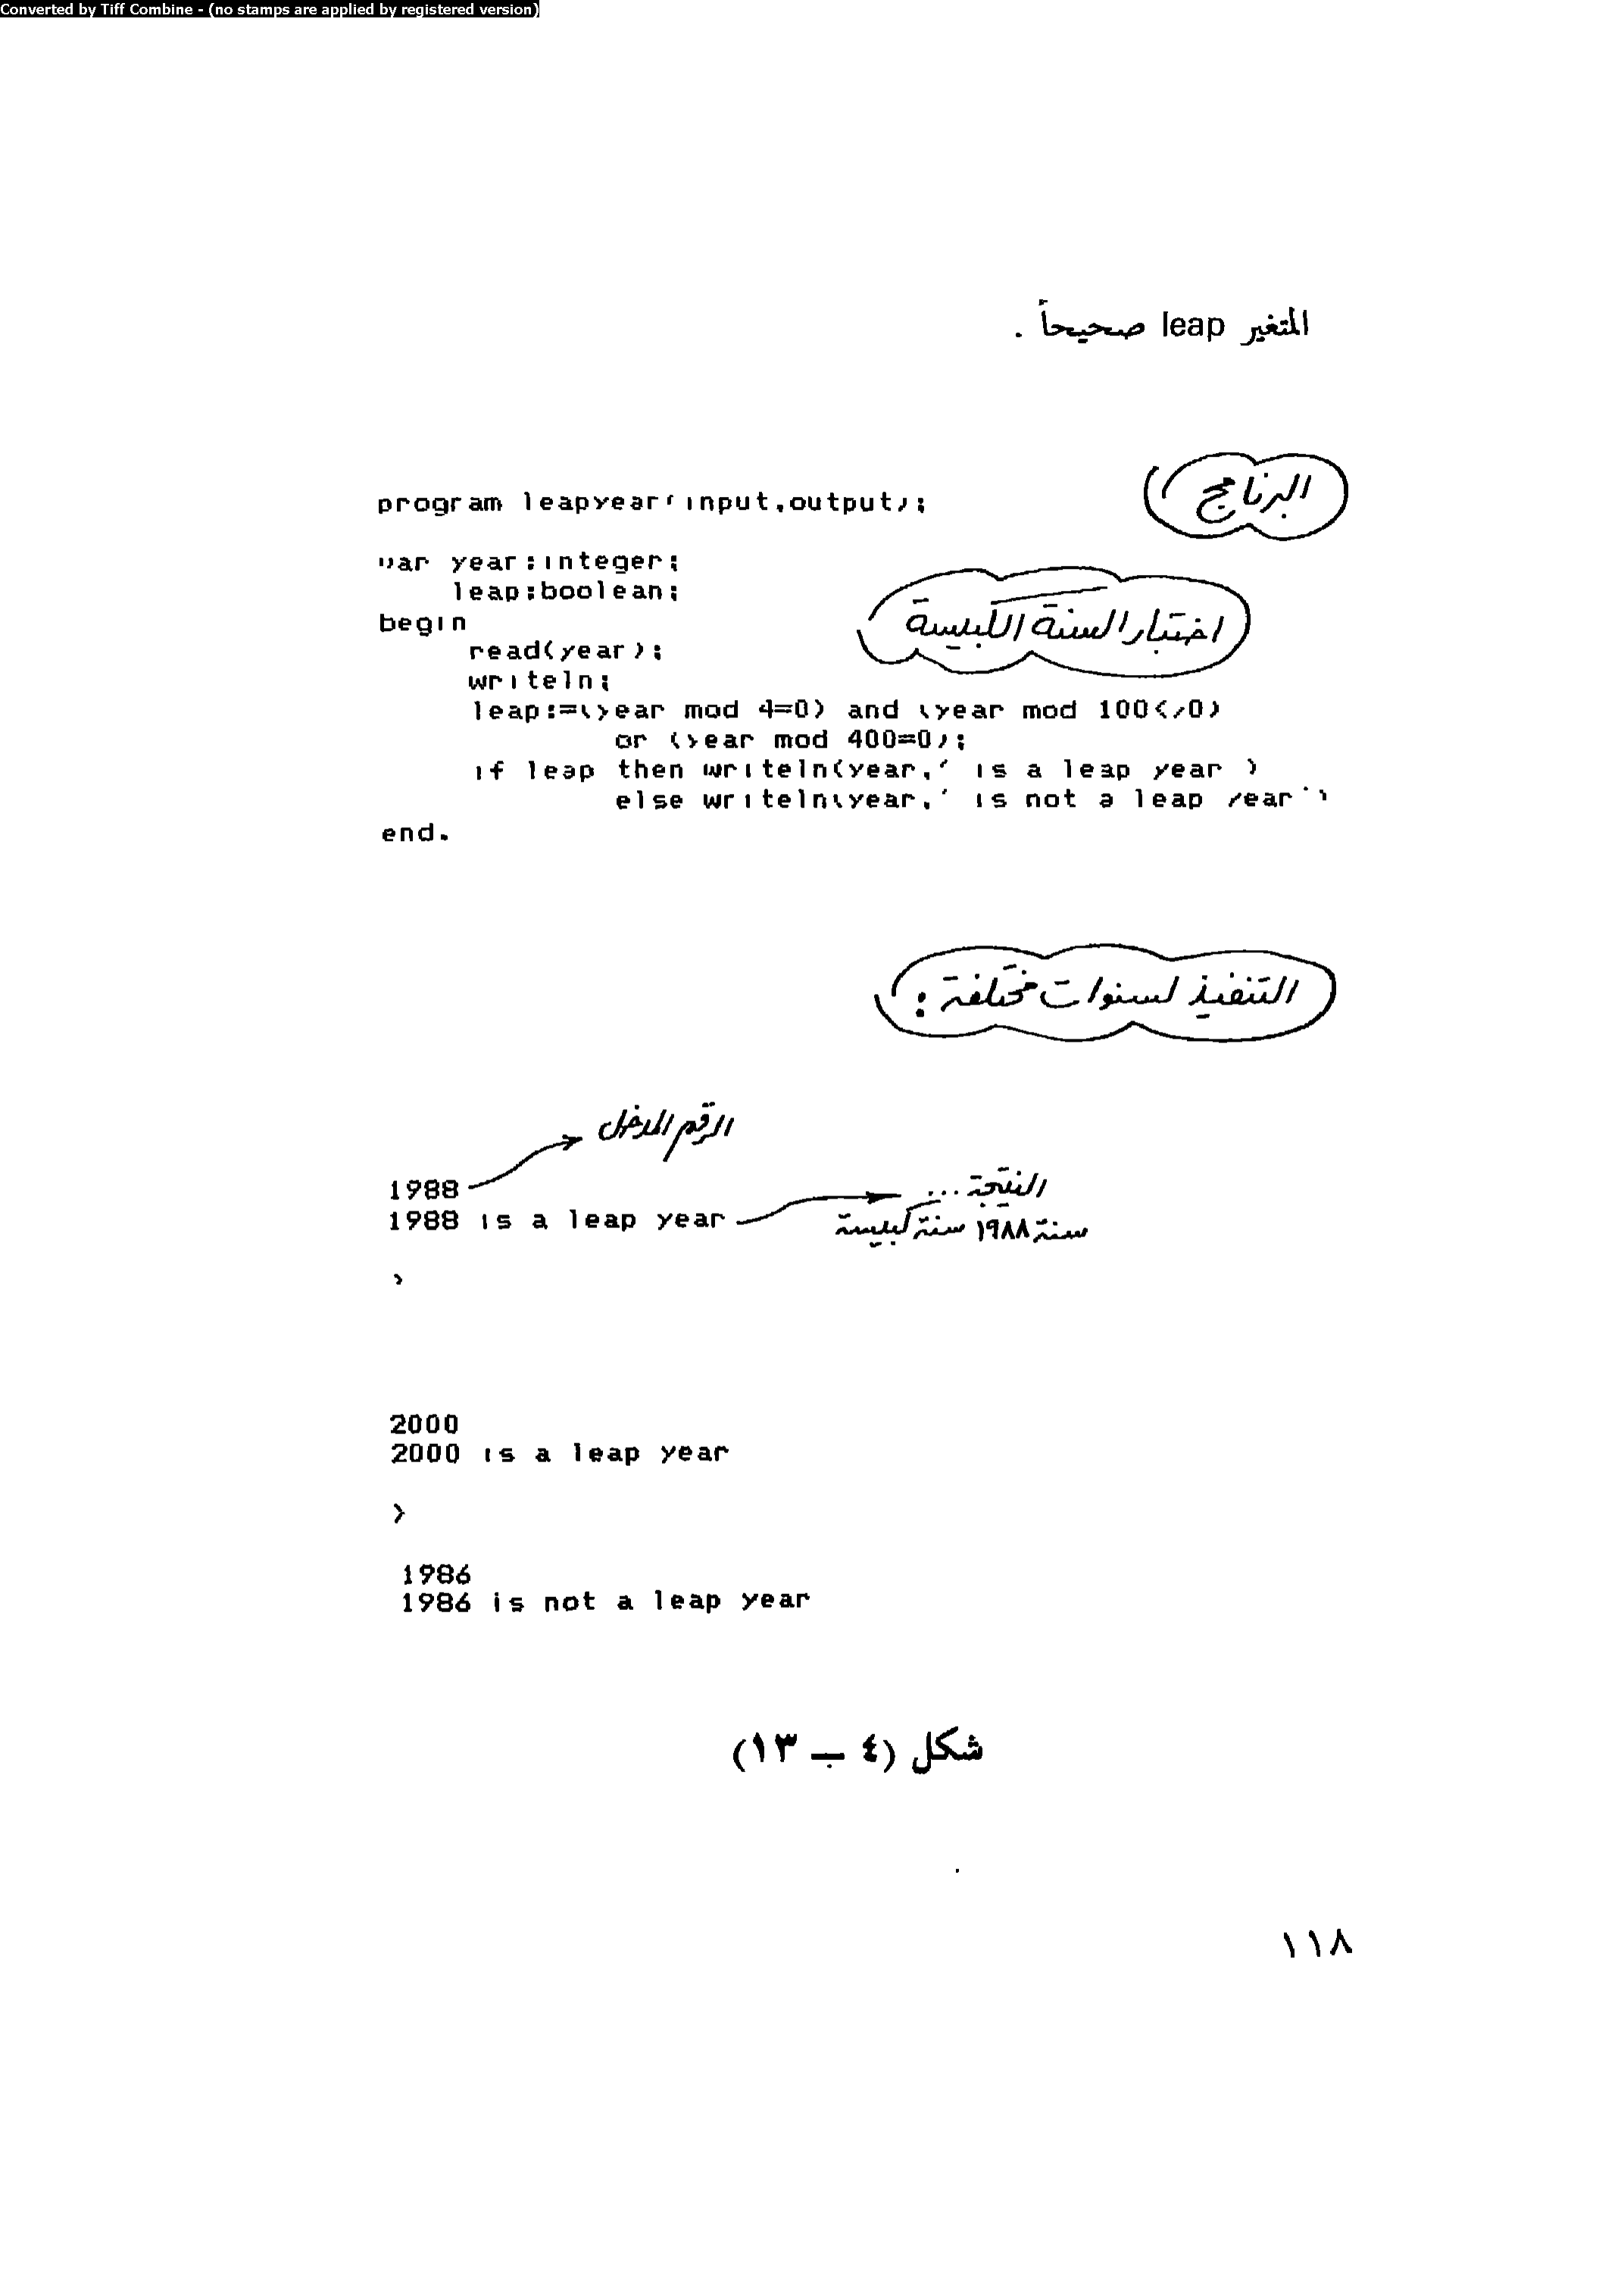 Converted by Tiff Combine - (no stamps are applied by registered version)
المتغير leap صحيحاً .
البرنامج
program leapyear(input,output);
var year:integer;
leap:boolean;
اختبار السنة الكبيسة
begin
read(year);
writeln;
leap:=(year mod 4=0) and (year mod 100<>0)
or (year mod 400=0);
if leap then writeln(year,' is a leap year )
else writeln(year,' is not a leap year')
end.
التنفيذ لسنوات مختلفة :
الرقم المدخل
1988
النتيجة ...
1988 is a leap year
سنة ١٩٨٨ سنة كبيسة
>
2000
2000 is a leap year
>
1986
1986 is not a leap year
شكل (٤ – ١٣)
١١٨